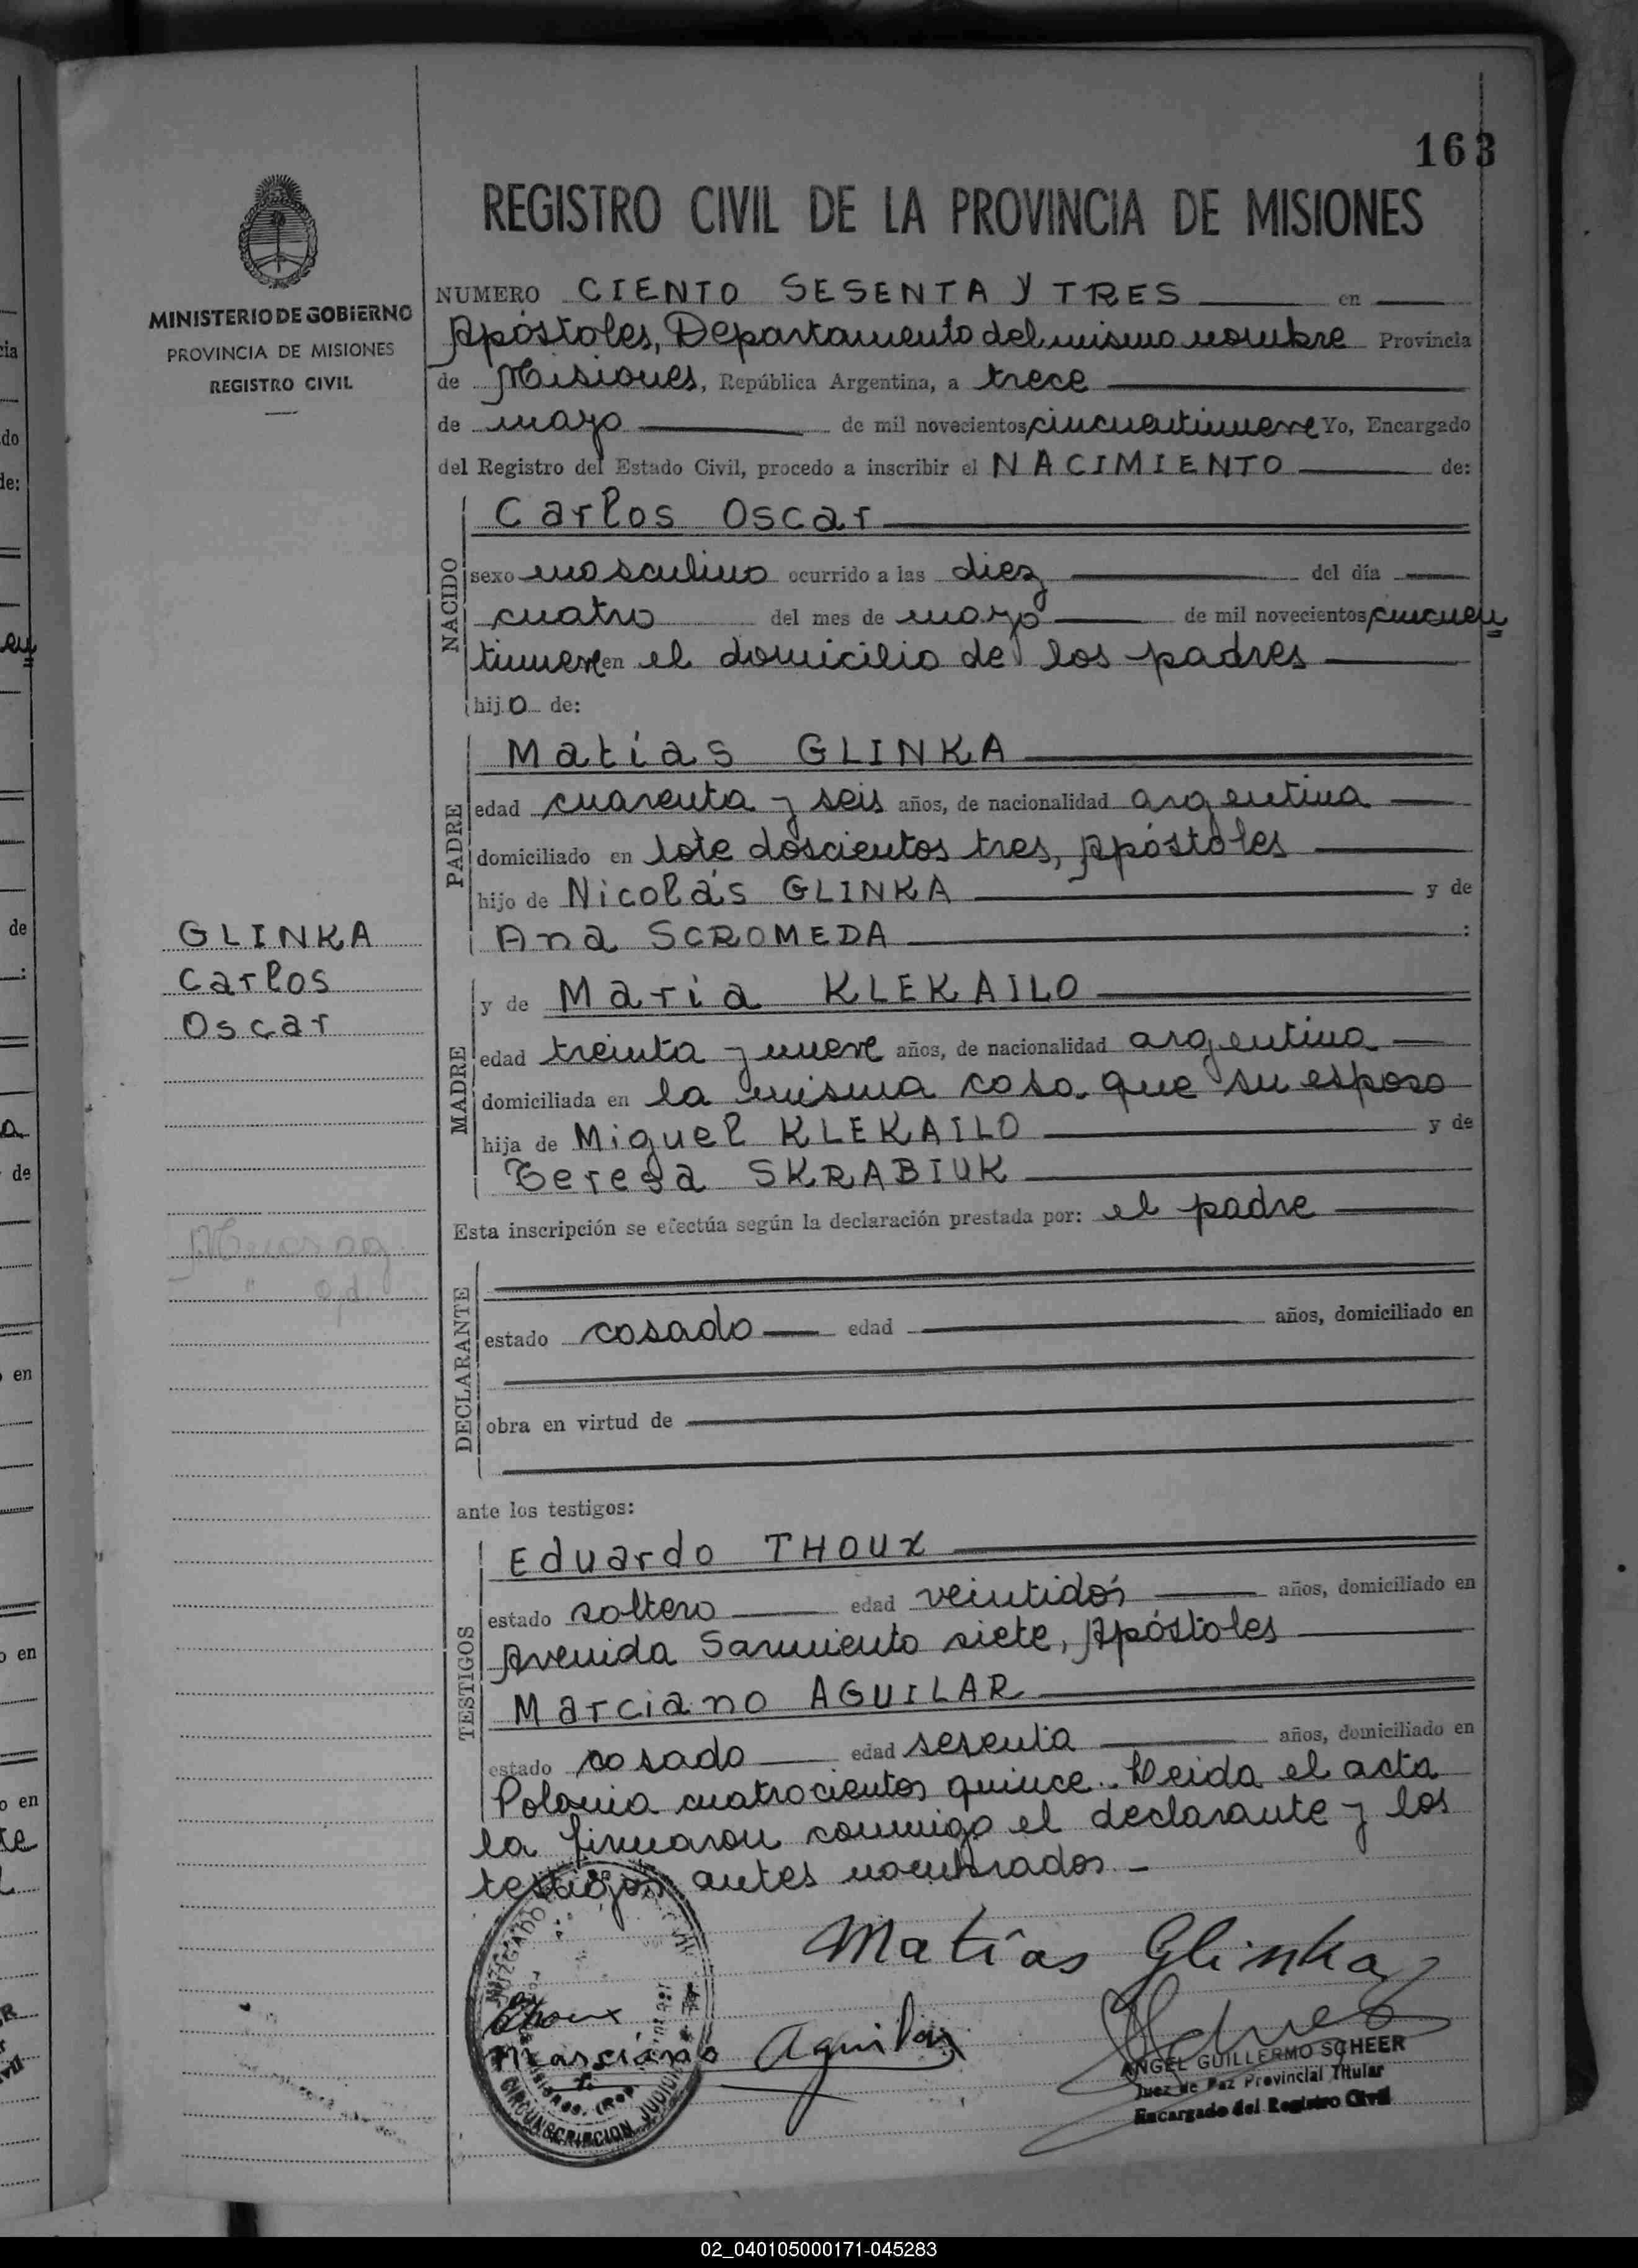 163
REGISTRO CIVIL DE LA PROVINCIA DE MISIONES
MINISTERIO DE GOBIERNO
PROVINCIA DE MISIONES
REGISTRO CIVIL
NUMERO CIENTO SESENTA Y TRES en
Apóstoles, Departamento del mismo nombre Provincia
de Misiones, República Argentina, a trece
de mayo de mil novecientos cincuentinueve Yo, Encargado
del Registro del Estado Civil, procedo a inscribir el NACIMIENTO de:
NACIDO
Carlos Oscar
sexo masculino ocurrido a las diez del día
cuatro del mes de mayo de mil novecientos cincuen
tinueve en el domicilio de los padres
hijo de:
PADRE
Matías GLINKA
edad cuarenta y seis años, de nacionalidad argentina
domiciliado en lote doscientos tres, Apóstoles
hijo de Nicolás GLINKA y de
Ana SCROMEDA :
GLINKA
Carlos
Oscar
MADRE
y de María KLEKAILO
edad treinta y nueve años, de nacionalidad argentina
domiciliada en la misma casa que su esposo
hija de Miguel KLEKAILO y de
Teresa SKRABIUK
Esta inscripción se efectúa según la declaración prestada por: el padre
DECLARANTE
estado casado edad años, domiciliado en
obra en virtud de
ante los testigos:
TESTIGOS
Eduardo THOUX
estado soltero edad veintidós años, domiciliado en
Avenida Sarmiento siete, Apóstoles
Marciano AGUILAR
estado casado edad sesenta años, domiciliado en
Polonia cuatrocientos quince.. Leida el acta
la firmaron conmigo el declarante y los
testigos antes nombrados.-
Matías Glinka
Thoux
Marciano Aguilar
JUZGADO
CIRCUNSCRIPCION JUDICIAL
ANGEL GUILLERMO SCHEER
Juez de Paz Provincial Titular
Encargado del Registro Civil
02_040105000171-045283